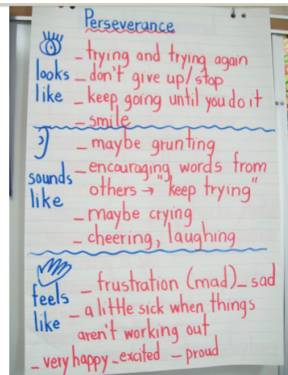 Perseverance
looks like
– trying and trying again
– don't give up/stop
– keep going until you do it
– smile
sounds like
– maybe grunting
– encouraging words from
others → "keep trying"
– maybe crying
– cheering, laughing
feels like
– frustration (mad) – sad
– a little sick when things
aren't working out
– very happy – excited – proud